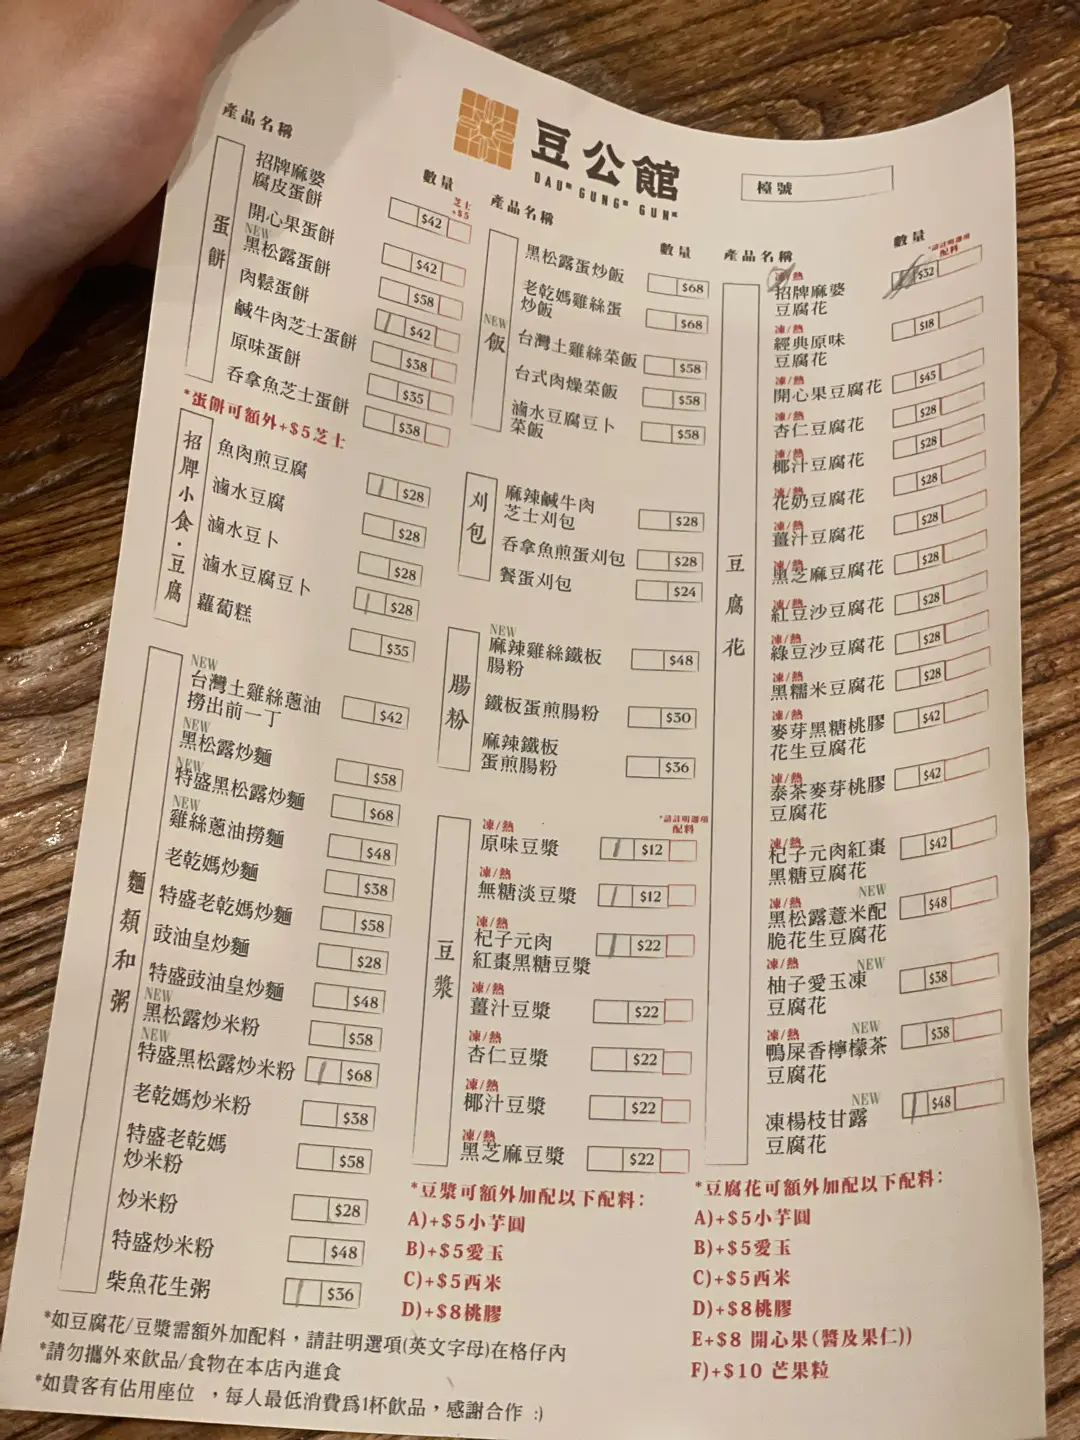 豆公館
DAU GUNG GUN
檯號
產品名稱
數量
芝士
+$5
蛋餅
招牌麻婆
腐皮蛋餅 $42
開心果蛋餅 $42
NEW
黑松露蛋餅 $58
肉鬆蛋餅 $42
鹹牛肉芝士蛋餅 $38
原味蛋餅 $35
吞拿魚芝士蛋餅 $38
*蛋餅可額外+$5芝士
招牌小食·豆腐
魚肉煎豆腐 $28
滷水豆腐 $28
滷水豆卜 $28
滷水豆腐豆卜 $28
蘿蔔糕 $35
麵類和粥
NEW
台灣土雞絲蔥油
撈出前一丁 $42
NEW
黑松露炒麵 $58
NEW
特盛黑松露炒麵 $68
NEW
雞絲蔥油撈麵 $48
老乾媽炒麵 $38
特盛老乾媽炒麵 $58
豉油皇炒麵 $28
特盛豉油皇炒麵 $48
NEW
黑松露炒米粉 $58
NEW
特盛黑松露炒米粉 $68
老乾媽炒米粉 $38
特盛老乾媽
炒米粉 $58
炒米粉 $28
特盛炒米粉 $48
柴魚花生粥 $36
產品名稱
數量
NEW
飯
黑松露蛋炒飯 $68
老乾媽雞絲蛋
炒飯 $68
台灣土雞絲菜飯 $58
台式肉燥菜飯 $58
滷水豆腐豆卜
菜飯 $58
刈包
麻辣鹹牛肉
芝士刈包 $28
吞拿魚煎蛋刈包 $28
餐蛋刈包 $24
腸粉
NEW
麻辣雞絲鐵板
腸粉 $48
鐵板蛋煎腸粉 $30
麻辣鐵板
蛋煎腸粉 $36
豆漿
*請註明選項
配料
凍/熱
原味豆漿 $12
凍/熱
無糖淡豆漿 $12
凍/熱
杞子元肉
紅棗黑糖豆漿 $22
凍/熱
薑汁豆漿 $22
凍/熱
杏仁豆漿 $22
凍/熱
椰汁豆漿 $22
凍/熱
黑芝麻豆漿 $22
*豆漿可額外加配以下配料：
A)+$5小芋圓
B)+$5愛玉
C)+$5西米
D)+$8桃膠
產品名稱
數量
*請註明選項
配料
豆腐花
凍/熱
招牌麻婆
豆腐花 $32
凍/熱
經典原味
豆腐花 $18
凍/熱
開心果豆腐花 $45
凍/熱
杏仁豆腐花 $28
凍/熱
椰汁豆腐花 $28
凍/熱
花奶豆腐花 $28
凍/熱
薑汁豆腐花 $28
凍/熱
黑芝麻豆腐花 $28
凍/熱
紅豆沙豆腐花 $28
凍/熱
綠豆沙豆腐花 $28
凍/熱
黑糯米豆腐花 $28
凍/熱
麥芽黑糖桃膠
花生豆腐花 $42
凍/熱
泰茶麥芽桃膠
豆腐花 $42
凍/熱
杞子元肉紅棗
黑糖豆腐花 $42
凍/熱 NEW
黑松露薏米配
脆花生豆腐花 $48
凍/熱 NEW
柚子愛玉凍
豆腐花 $38
凍/熱 NEW
鴨屎香檸檬茶
豆腐花 $38
NEW
凍楊枝甘露
豆腐花 $48
*豆腐花可額外加配以下配料：
A)+$5小芋圓
B)+$5愛玉
C)+$5西米
D)+$8桃膠
E+$8 開心果(醬及果仁))
F)+$10 芒果粒
*如豆腐花/豆漿需額外加配料，請註明選項(英文字母)在格仔內
*請勿攜外來飲品/食物在本店內進食
*如貴客有佔用座位 ，每人最低消費爲1杯飲品，感謝合作 :)